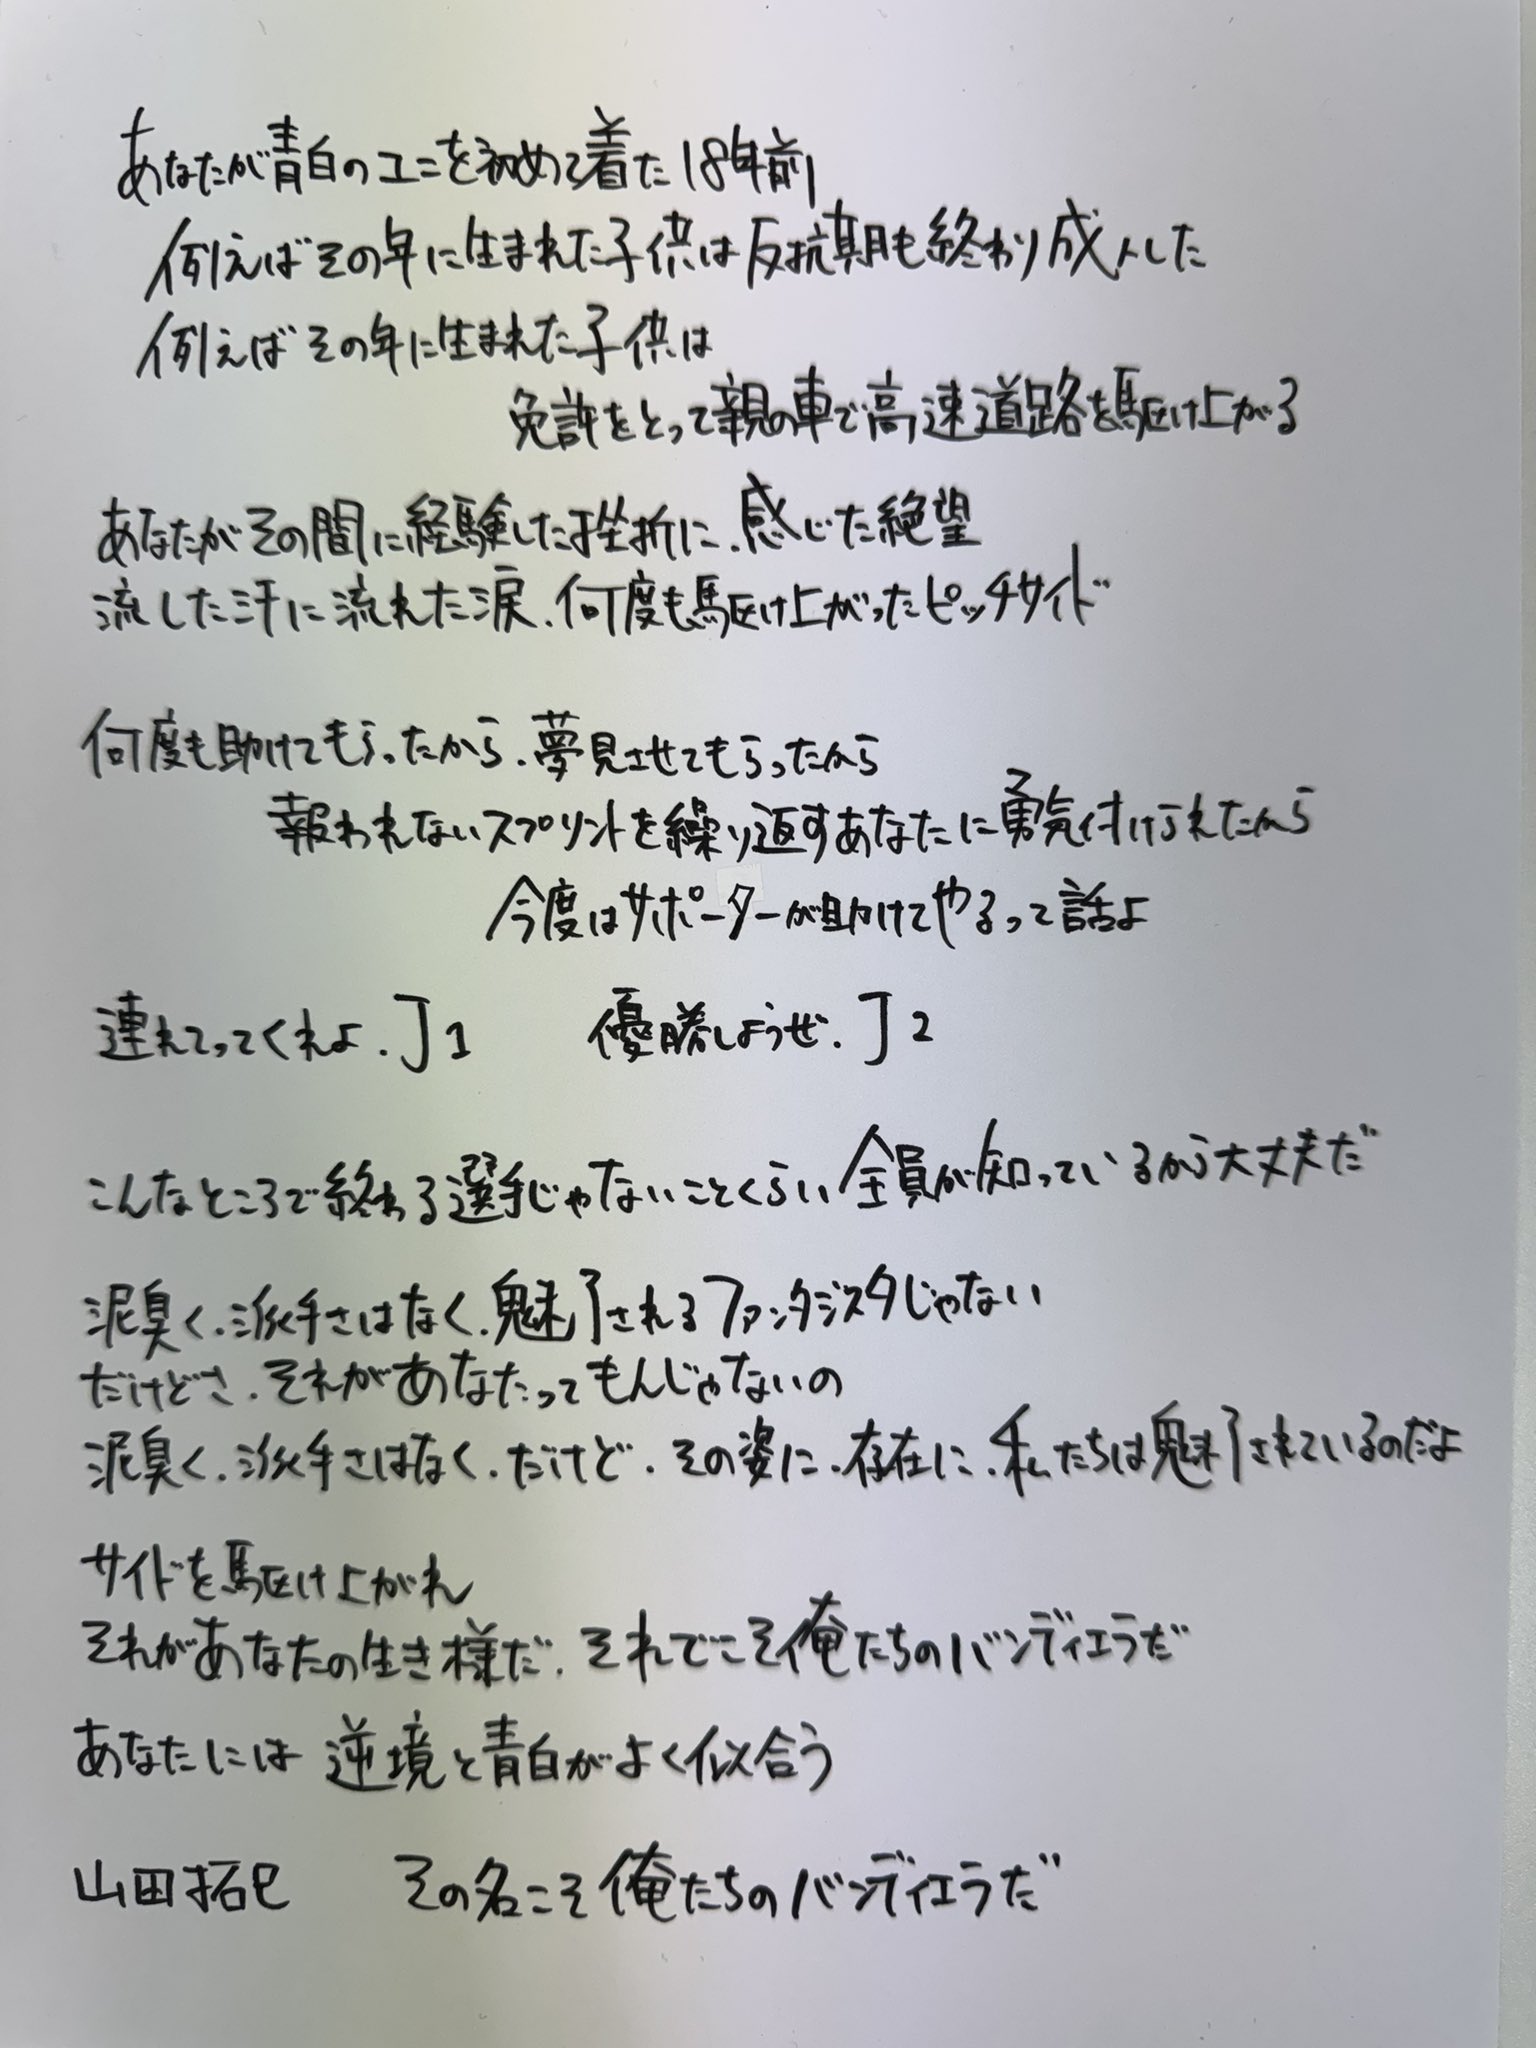 あなたが青白のユニを初めて着た18年前
例えばその年に生まれた子供は反抗期も終わり成人した
例えばその年に生まれた子供は
免許をとって親の車で高速道路を駆け上がる
あなたがその間に経験した挫折に、感じた絶望
流した汗に流れた涙、何度も駆け上がったピッチサイド
何度も助けてもらったから、夢見させてもらったから
報われないスプリントを繰り返すあなたに勇気付けられたから
今度はサポーターが助けてやるって話よ
連れてってくれよ、J1 優勝しようぜ、J2
こんなところで終わる選手じゃないことくらい全員が知っているから大丈夫だ
泥臭く、派手さはなく、魅了されるファンタジスタじゃない
だけどさ、それがあなたってもんじゃないの
泥臭く、派手さはなく、だけど、その姿に、存在に、私たちは魅了されているのだよ
サイドを駆け上がれ
それがあなたの生き様だ、それでこそ俺たちのバンディエラだ
あなたには逆境と青白がよく似合う
山田拓巳 その名こそ俺たちのバンディエラだ